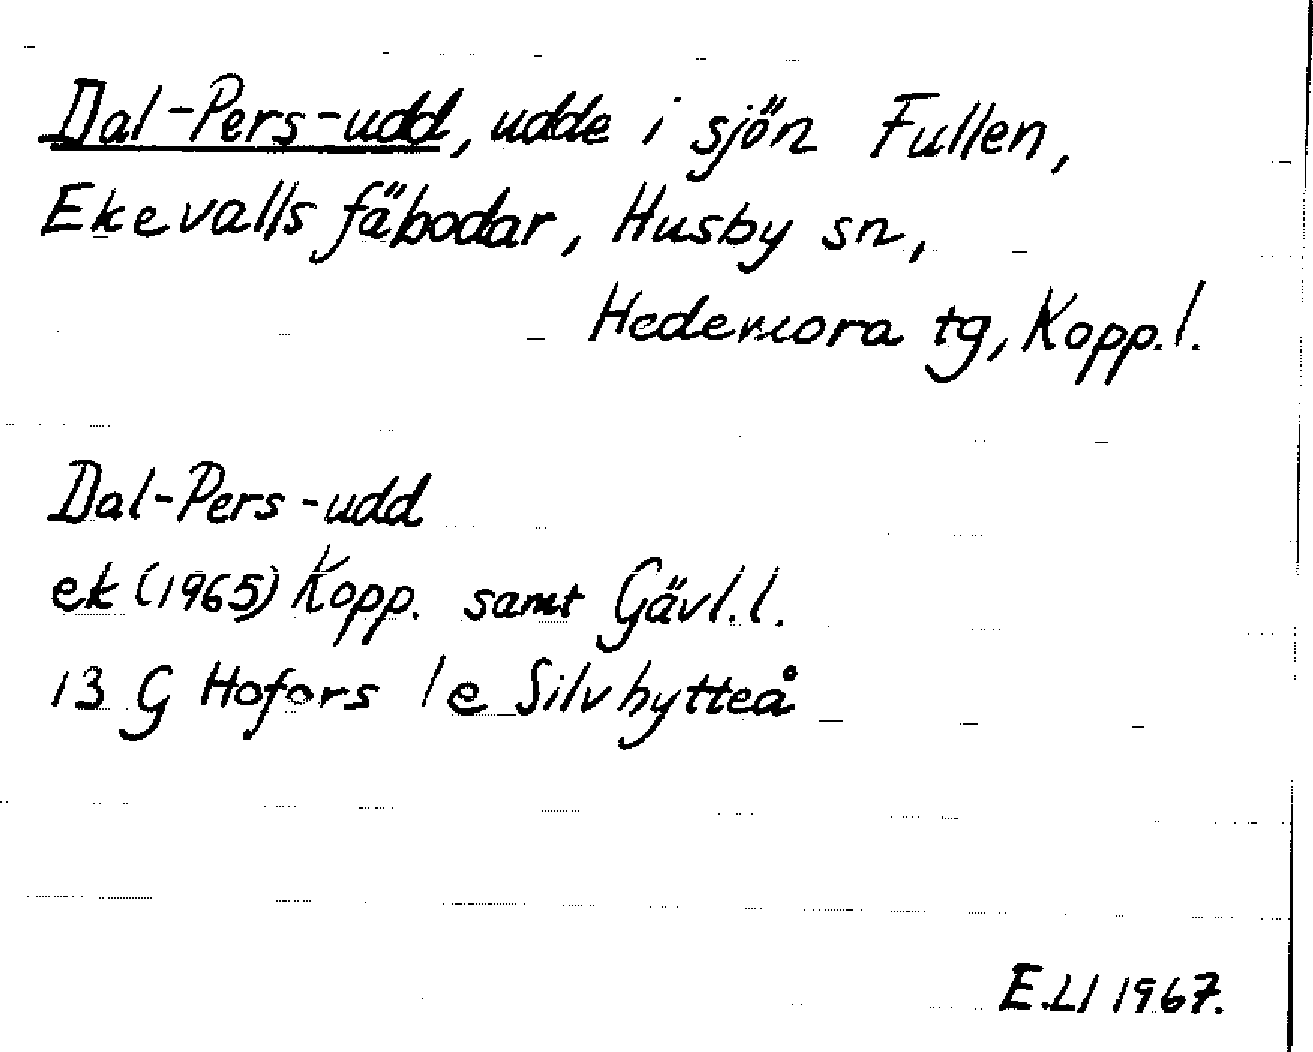 Dal-Pers-udd, udde i sjön Fullen,
Ekevalls fäbodar, Husby sn,
Hedemora tg, Kopp.l.
Dal-Pers-udd
ek (1965) Kopp. samt Gävl.l.
13 G Hofors 1 e Silvhytteå
E.Ll 1967.